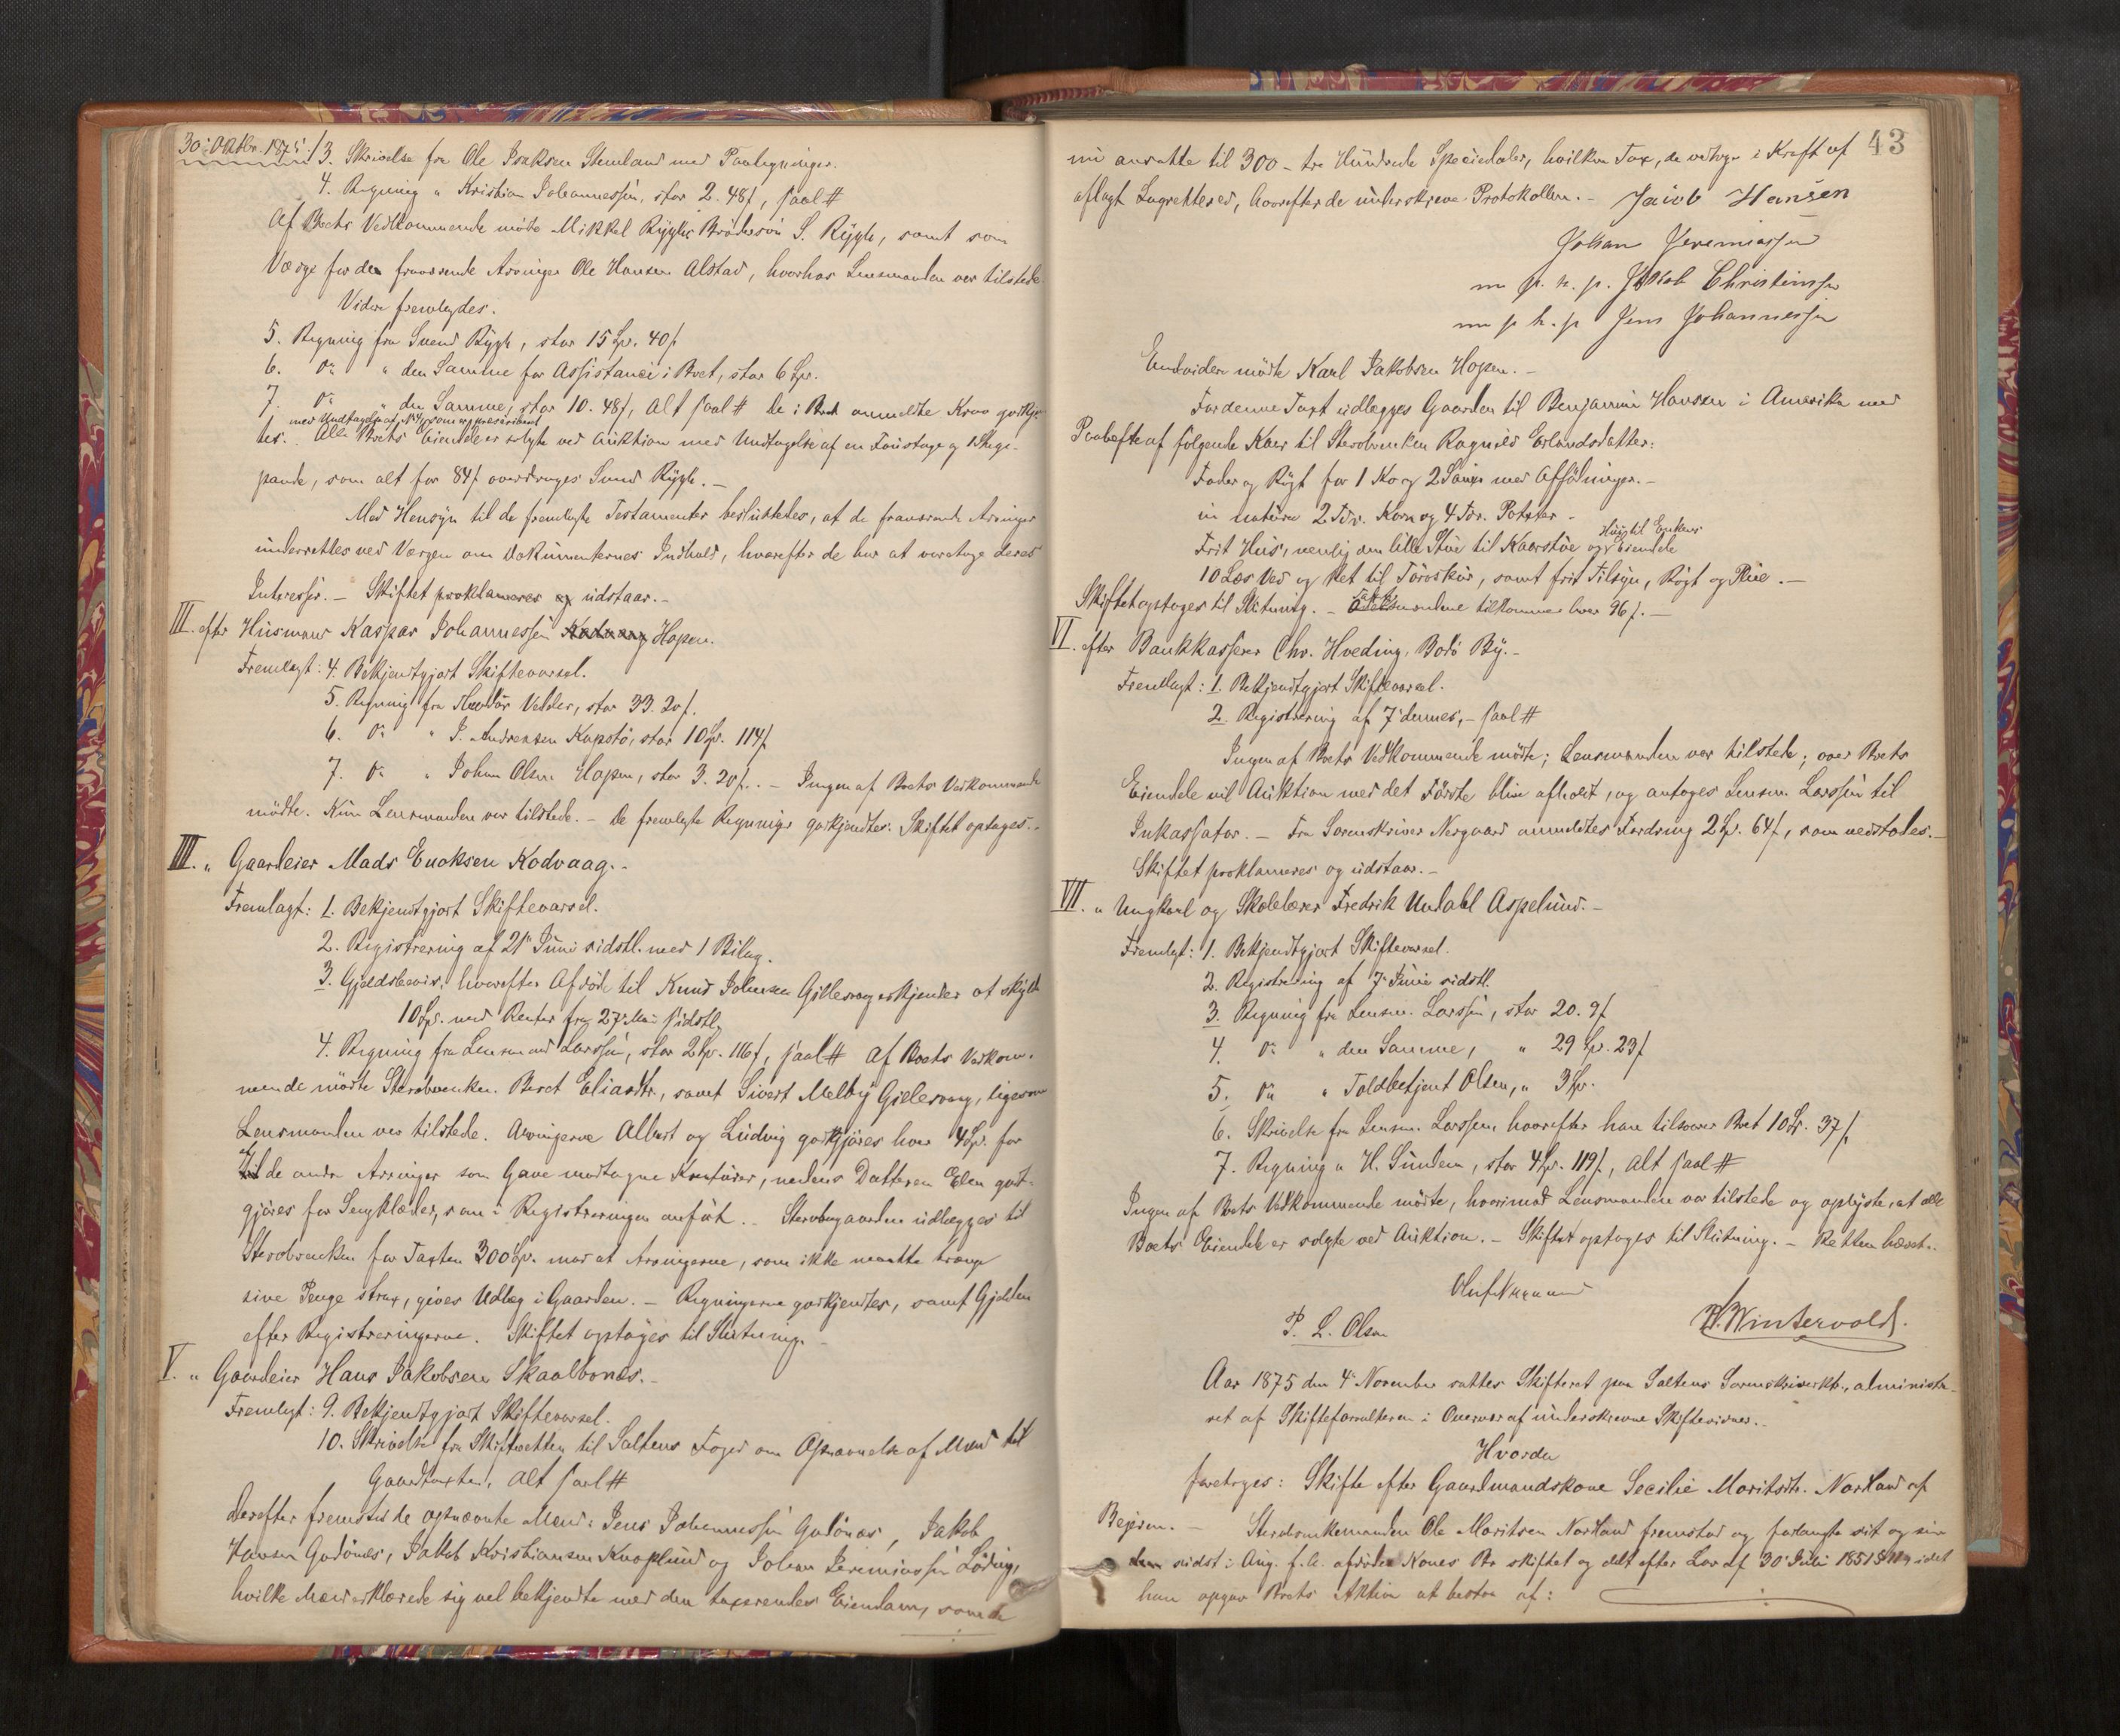 30' Oktbr. 1875. / 3. Skrivelse fra Ole Isaksen Stemland med Paategninger.
4. Regning " Kristian Johannessen, stor 2. 48 f, saal #
Af Boets Vedkommende mödte Mikkel Ryghs Brodersön S. Rygh, samt som
Værge for den fraværende Arvinger Ole Hansen Alstad, hvorhos Lensmanden var tilstede.
Videre fremlagdes.
5. Regning fra Svend Rygh, stor 15 Sp. 40 f
6. Do " den Samme for Assistance i Boet, stor 6 Sp.
7. Do " den Samme, stor 10. 48 f, alt saal # De i Boet anmeldte Krav godkjen-
med Undtagelse af No som er præskriberet
tes. Alle Boets Eiendele er solgte ved Auktion med Undtagelse af en Foustage og Stege-
pande, som alt for 84 f overdrages Svend Rygh. –
Med Hensyn til de fremlagte Testamenter besluttedes, at de fraværende Arvinger
underrettes ved Værgen om Dokumenternes Indhold, hvorefter de har at varetage deres
Interesser. – Skiftet proklameres og udstaar. –
III. efter Husmand Kaspar Johannessen Kodvaag Hopen.
Fremlagt: 4. Bekjendtgjort Skiftevarsel.
5. Regning fra Handlar Valder, stor 33. 20 f.
6. Do " J. Andreasen Kapstö, stor 10 Sp. 114 f
7. Do " Johan Olsen Hopen, stor 3. 20 f. – Ingen af Boets Vedkommende
mödte. Kun Lensmanden var tilstede. – De fremlagte Regninger godkjendtes. Skiftet optages. –
IIII. " Gaardeier Mads Enoksen Kodvaag. –
Fremlagt: 1. Bekjendtgjort Skiftevarsel.
2. Registrering af 21' Juni sidstl. med 1 Bilag.
3. Gjældsbevis, hvorefter Afdöde til Knud Johnsen Gillesvaag erkjender at skylde
10 Sp. med Renter fra 27' Mai sidstl.
4. Regning fra Lensmand Larssen, stor 2 Sp. 116 f, saal # Af Boets Vedkom-
mende mödte Stervboenken Beret Eliasdtr., samt Sivert Melby Gjelesvaag, ligesom
Lensmanden var tilstede. Arvingerne Albert og Ludvig godtgjöres hver 4 Sp. for
af de andre Arvinger som Gave modtagne Konfurer, medens Datteren Elen godt-
gjöres for Sengklæder, som i Registreringen anfört. – Stervbogaarden udlægges til
Stervboenken for Taxten 300 Sp. mod at Arvingerne, som ikke maatte trænge
sine Penge strax, gives Udlæg i Gaarden. – Regningerne godkjendtes, samt Gjelden
efter Registreringerne. Skiftet optages til Slutning. –
V. " Gaardeier Hans Jakobsen Skaalbones. –
Fremlagt: 9. Bekjendtgjort Skiftevarsel.
10. Skrivelse fra Skifteretten til Saltens Foged om Opnævnelse af Mænd til
Gaardtaxten, alt saal #
Derefter fremstod de opnævnte Mænd: Jens Johannessen Godönæs, Jakob
Hansen Godönæs, Jakob Kristiansen Knaplund og Johan Jeremiassen Löding,
hvilke Mænd erklærede sig vel bekjendte med den taxerendes Eiendom, som de
43
nu ansatte til 300 – tre Hundrede Speciedaler, hvilken Tax, de vedtoge i Kraft af
aflagt Laugrettesed, hvorefter de underskreve Protokollen. – Jacob Hansen
Johan Jeremiassen
m p. h. p. Jakob Christiensen
m p h. p Jens Johannessen
Endvidere mödte Karl Jakobsen Hopen. –
For denne Taxt udlægges Gaarden til Benjamin Hansen i Amerika med
Paahefte af fölgende Kaar til Stervboenken Ragnild Erlandsdatter:
Foder og Rögt for 1 Ko og 2 Sauer med Afföninger. –
in natura 2 Tdr. Korn og 4 Tdr. Poteter –
Frit Hus, nemlig den lille Stue til Kaarstue og Hus til Enkens Eiendele
10 Læs Ved og Ret til Törvskur, samt frit Tilsyn, Rögt og Pleie. –
Skiftet optages til Slutning. – Taxtmændene tilkommer hver 96 f. –
VI. efter Bankkasserer Chr. Hveding, Bodö By. –
Fremlagt: 1. Bekjendtgjort Skiftevarsel.
2. Registrering af 7' dennes, – saal #
Ingen af Boets Vedkommende mödte; Lensmanden var tilstede; over Boets
Eiendele vil Auktion med det Förste blive afholdt, og antages Lensm. Larssen til
Inkassator. – Fra Sorenskriver Norgaard anmeldtes Fordring 2 Sp. 64 f, som vedtoges. –
Skiftet proklameres og udstaar. –
VII. " Ungkarl og Skolelærer Fredrik Undahl Aspelund. –
Fremlagt: 1. Bekjendtgjort Skiftevarsel.
2. Registrering af 7' Juni sidstl.
3. Regning fra Lensm. Larssen, stor 20. 9 f
4. Do " den Samme, " 29 Sp. 23 f
5. Do " Toldbetjent Olsen, " 3 Sp.
6. Skrivelse fra Lensm. Larssen, hvorefter han tilsvarer Boet 10 Sp. 37 f.
7. Regning " H. Sundem, stor 4 Sp. 119 f, alt saal #
Ingen af Boets Vedkommende mödte, hvorimod Lensmanden var tilstede og oplyste, at alle
Boets Eiendele er solgte ved Auktion. – Skiftet optages til Slutning. – Retten hævet. –
P. L. Olsen
W. Wintervold.
Aar 1875 den 4' November sattes Skifteret paa Saltens Sorenskriverktr., administre-
ret af Skifteforvalteren i Overvær af underskrevne Skiftevidner. –
Hvorda
foretoges: Skifte efter Gaardmandskone Secilie Moritsdtr. Nordland af
Bejeren. – Stervboenkemanden Ole Moritsen Nordland fremstod og forlangte sit og sin
sidst i Aug. f. A. afdöde Kones Bo skiftet og delt efter Lov af 30' Juli 1851 idet
han opgav Boets Aktiva at bestaa af: